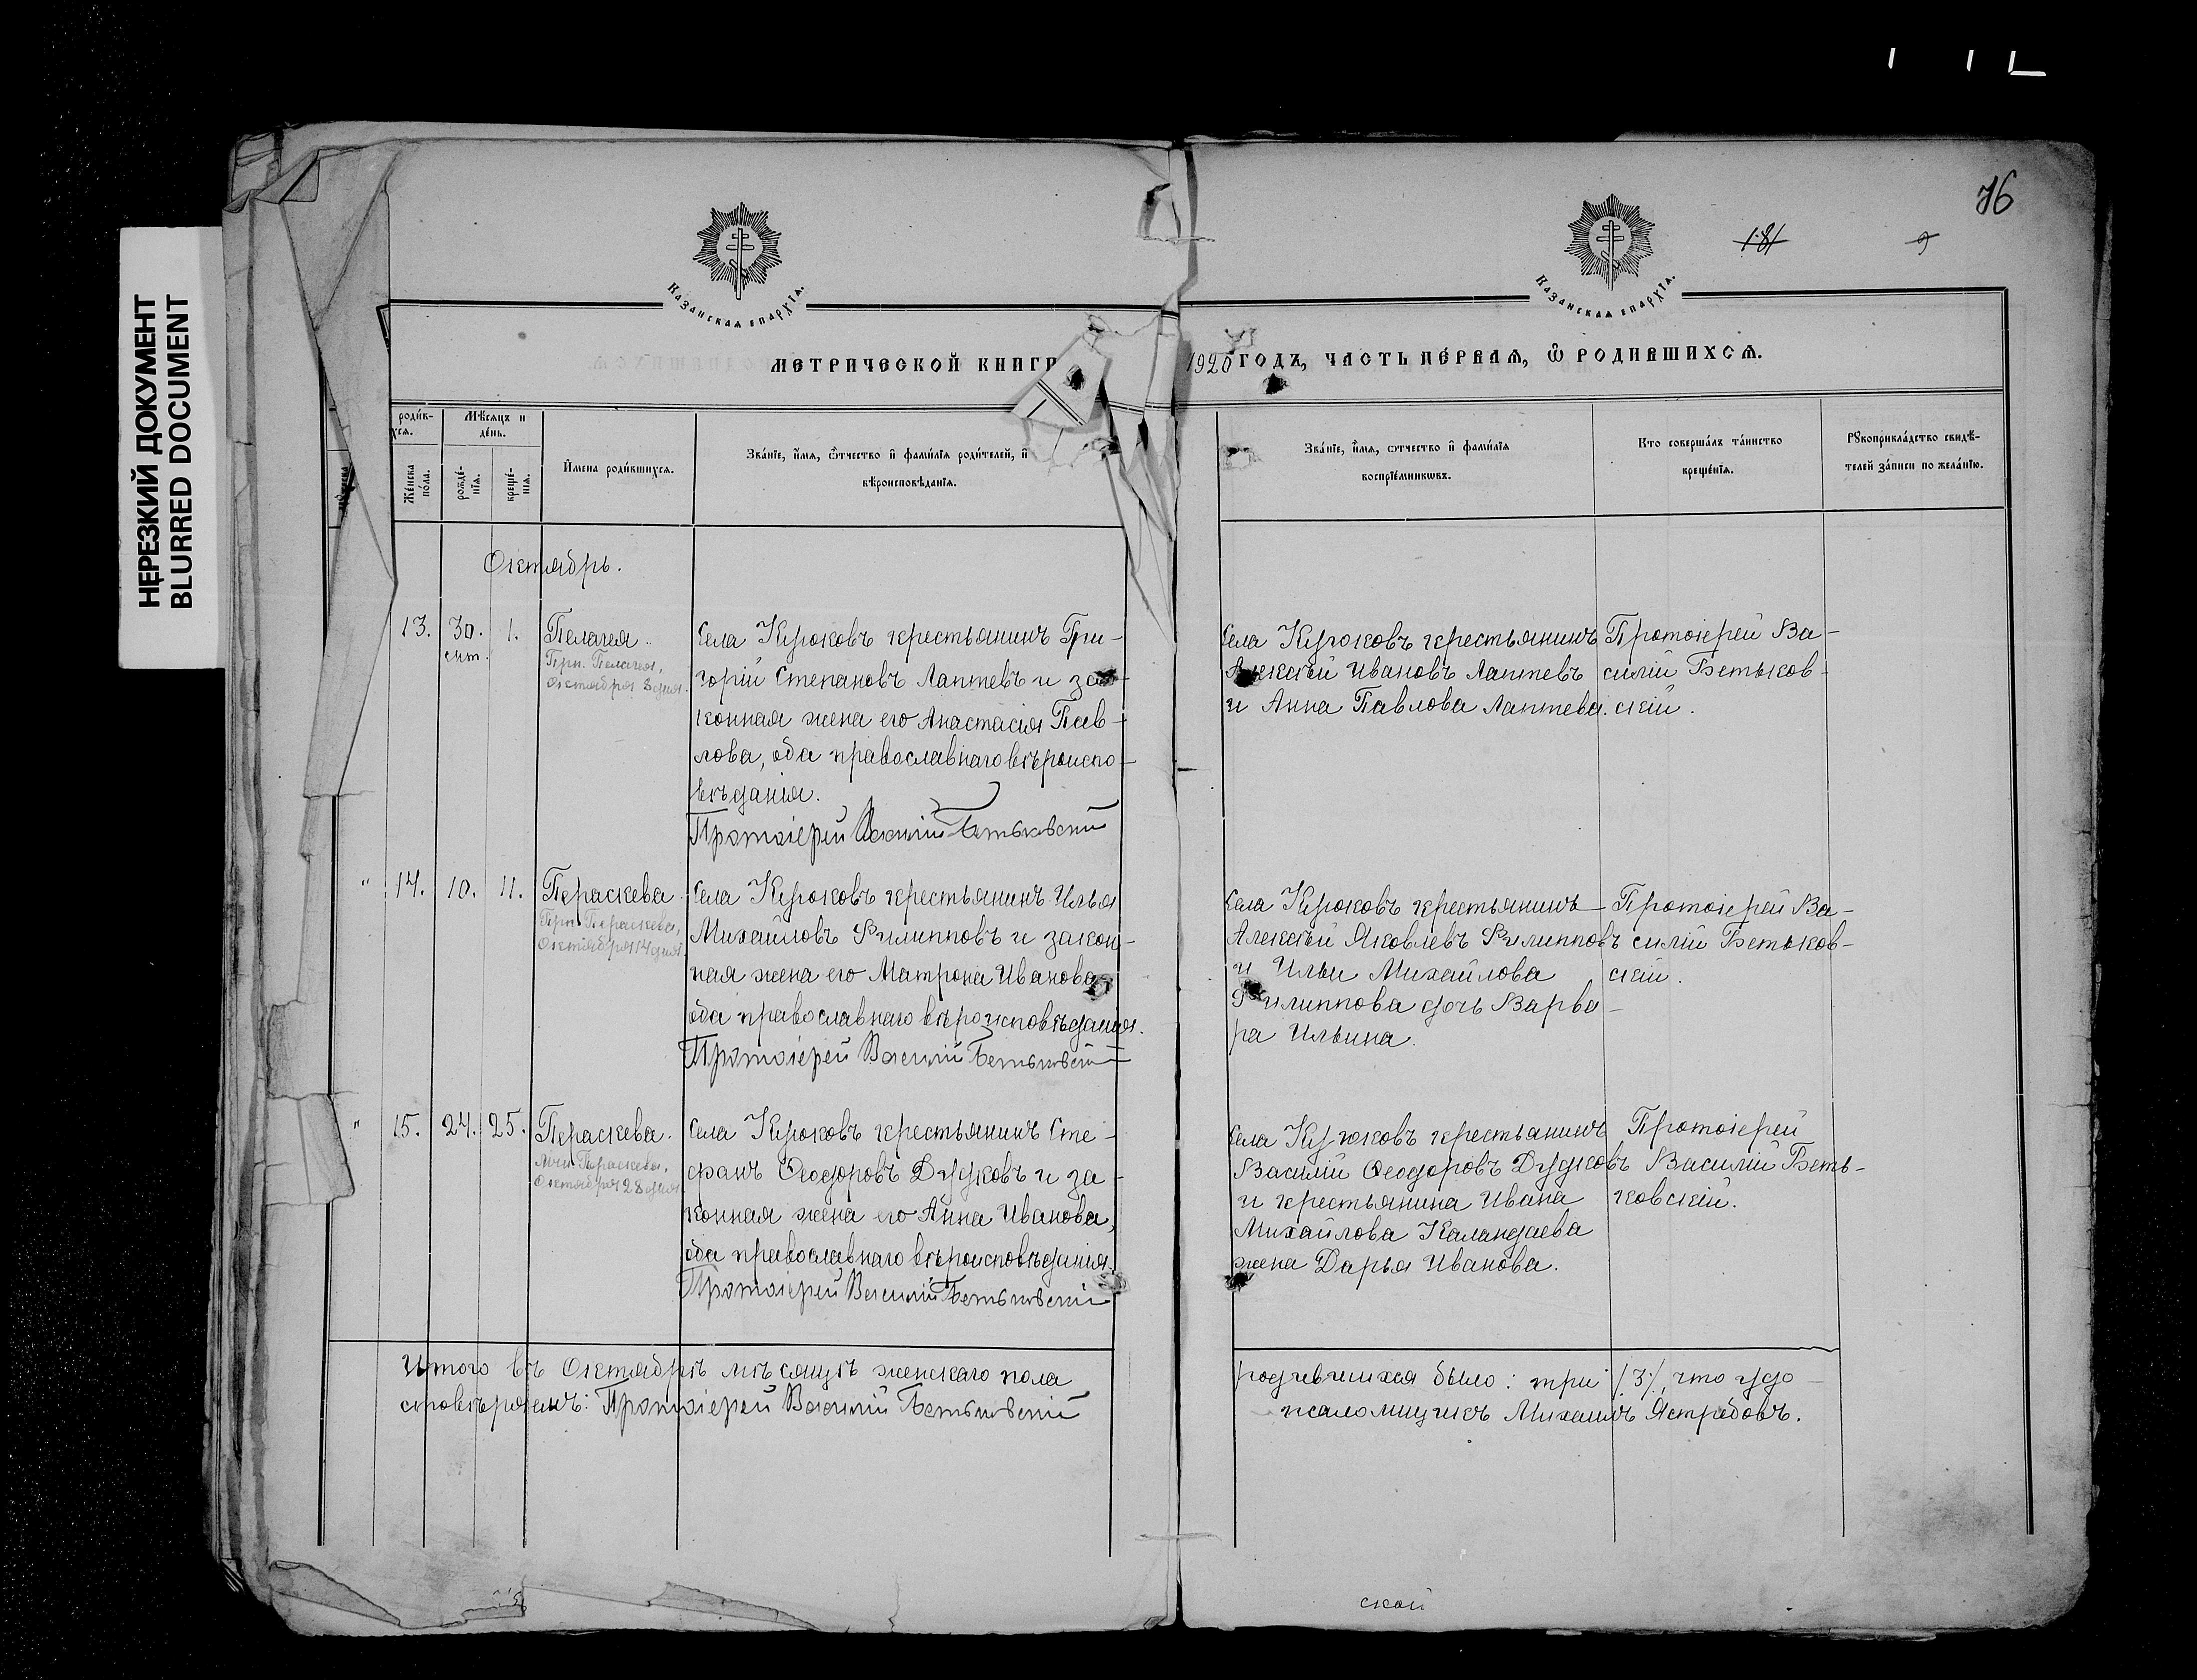 НЕРЕЗКИЙ ДОКУМЕНТ
BLURRED DOCUMENT
76
181
9
Казанская епархїѧ.
Казанская епархїѧ.
МЕТРИЧЕСКОЙ КНИГИ
1920 ГОДЪ, ЧАСТЬ ПЕ́РВАѦ, Ѿ РОДИВШИХСѦ.
роди́в-
хсѧ.
Же́нска по́ла.
Мѣ́сѧцъ и де́нь.
рожде́-
нїѧ.
креще́-
нїѧ.
И҆мена роди́вшихсѧ.
Зва́нїе, и҆́мѧ, ѻ҆́тчество и҆ фами́лїѧ роди́телей, и҆
вѣроисповѣ́данїѧ.
Зва́нїе, и҆́мѧ, ѻ҆́тчество и҆ фами́лїѧ
воспрїе́мникѡвъ.
Кто̀ соверша́лъ та́инство
креще́нїѧ.
Рꙋкоприкла́дство свидѣ́-
телей за́писи по жела́нїю.
Октябрь.
13. 30. 1. Пелагея.
сент.
Прп. Пелагея,
октября 8 дня.
Села Крюковъ крестьянинъ Гри-
горій Степановъ Лаптевъ и за-
конная жена его Анастасія Пав-
лова, оба православнаго вѣроиспо-
вѣданія.
Протоіерей Василій Бетьковскій
Села Крюковъ крестьянинъ
Алексѣй Ивановъ Лаптевъ
и Анна Павлова Лаптева.
Протоіерей Ва-
силій Бетьков-
скій.
" 14. 10. 11. Параскева.
Прп. Параскева,
Октября 14 дня.
Села Крюковъ крестьянинъ Илья
Михайловъ Филипповъ и закон-
ная жена его Матрона Иванова
оба православнаго вѣроисповѣданія.
Протоіерей Василій Бетьковскій
Села Крюковъ крестьянинъ
Алексѣй Яковлевъ Филипповъ
и Ильи Михайлова
Филиппова дочь Варва-
ра Ильина.
Протоіерей Ва-
силій Бетьков-
скій.
" 15. 24. 25. Параскева.
Мчц. Параскева,
Октября 28 дня.
Села Крюковъ крестьянинъ Сте-
фанъ Ѳеодоровъ Дудковъ и за-
конная жена его Анна Иванова,
оба православнаго вѣроисповѣданія.
Протоіерей Василій Бетьковскій
Села Крюковъ крестьянинъ
Василій Ѳеодоровъ Дудковъ
и крестьянина Ивана
Михайлова Каландаева
жена Дарья Иванова.
Протоіерей
Василій Беть-
ковскій.
Итого въ Октябрѣ мѣсяцѣ женскаго пола
родившихся было: три /3/, что удо-
стовѣряемъ: Протоіерей Василій Бетьковскій
псаломщикъ Михаилъ Ястребовъ.
ской